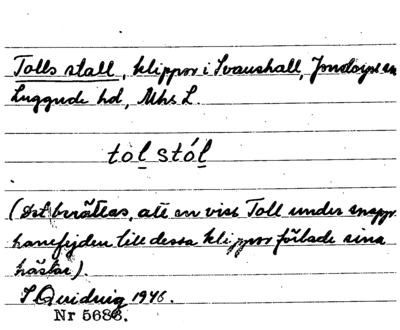 Tolls stall, klippor i Svanshall, Jonstorps sn
Luggude hd, Mhs L.
tol̲ stól̲
(Det berättas, att en viss Toll under snapp-
hanefejden till dessa klippor förlade sina
hästar).
I Quidvig 1946.
Nr 5686.